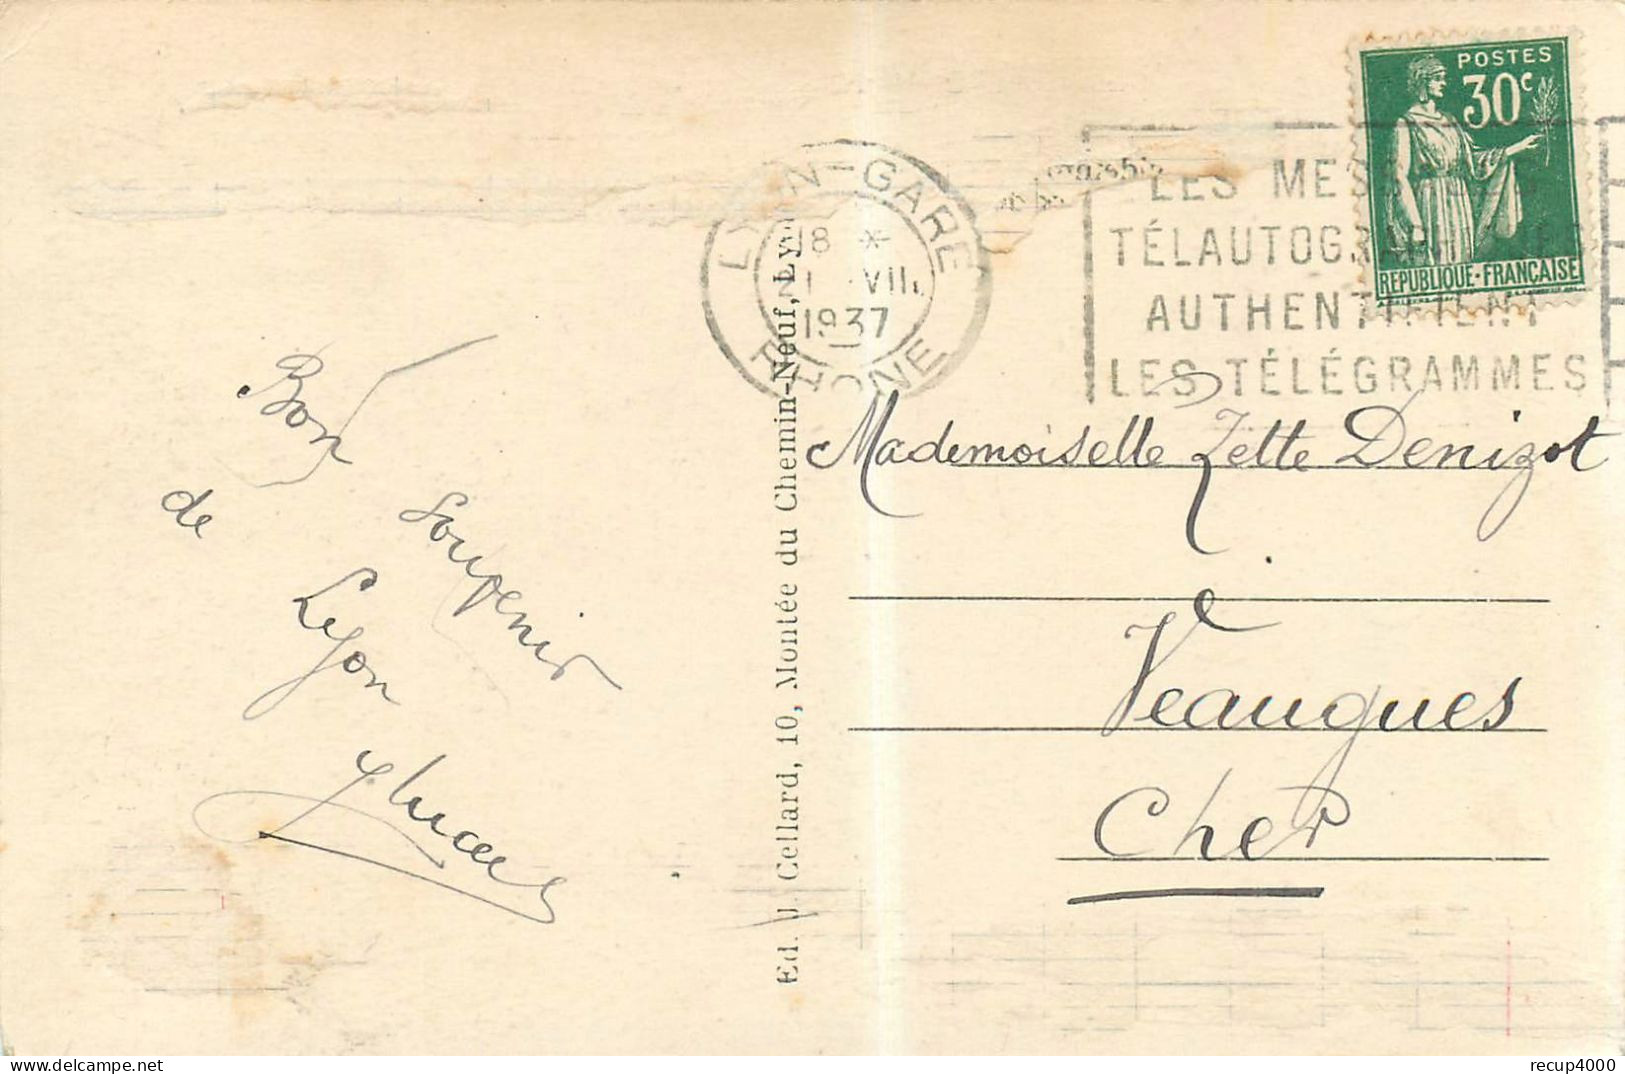 POSTES
30c
REPUBLIQUE-FRANÇAISE
LYON-GARE
18 *
1 VII
1937
RHONE
LES MESSAGES
TÉLAUTOGRAPHIQUES
AUTHENTIFIENT
LES TÉLÉGRAMMES
Bon
souvenir
de
Lyon
Mademoiselle Zette Denizot
Veaugues
Cher
Ed. J. Cellard, 10, Montée du Chemin-Neuf, Lyon
recup4000